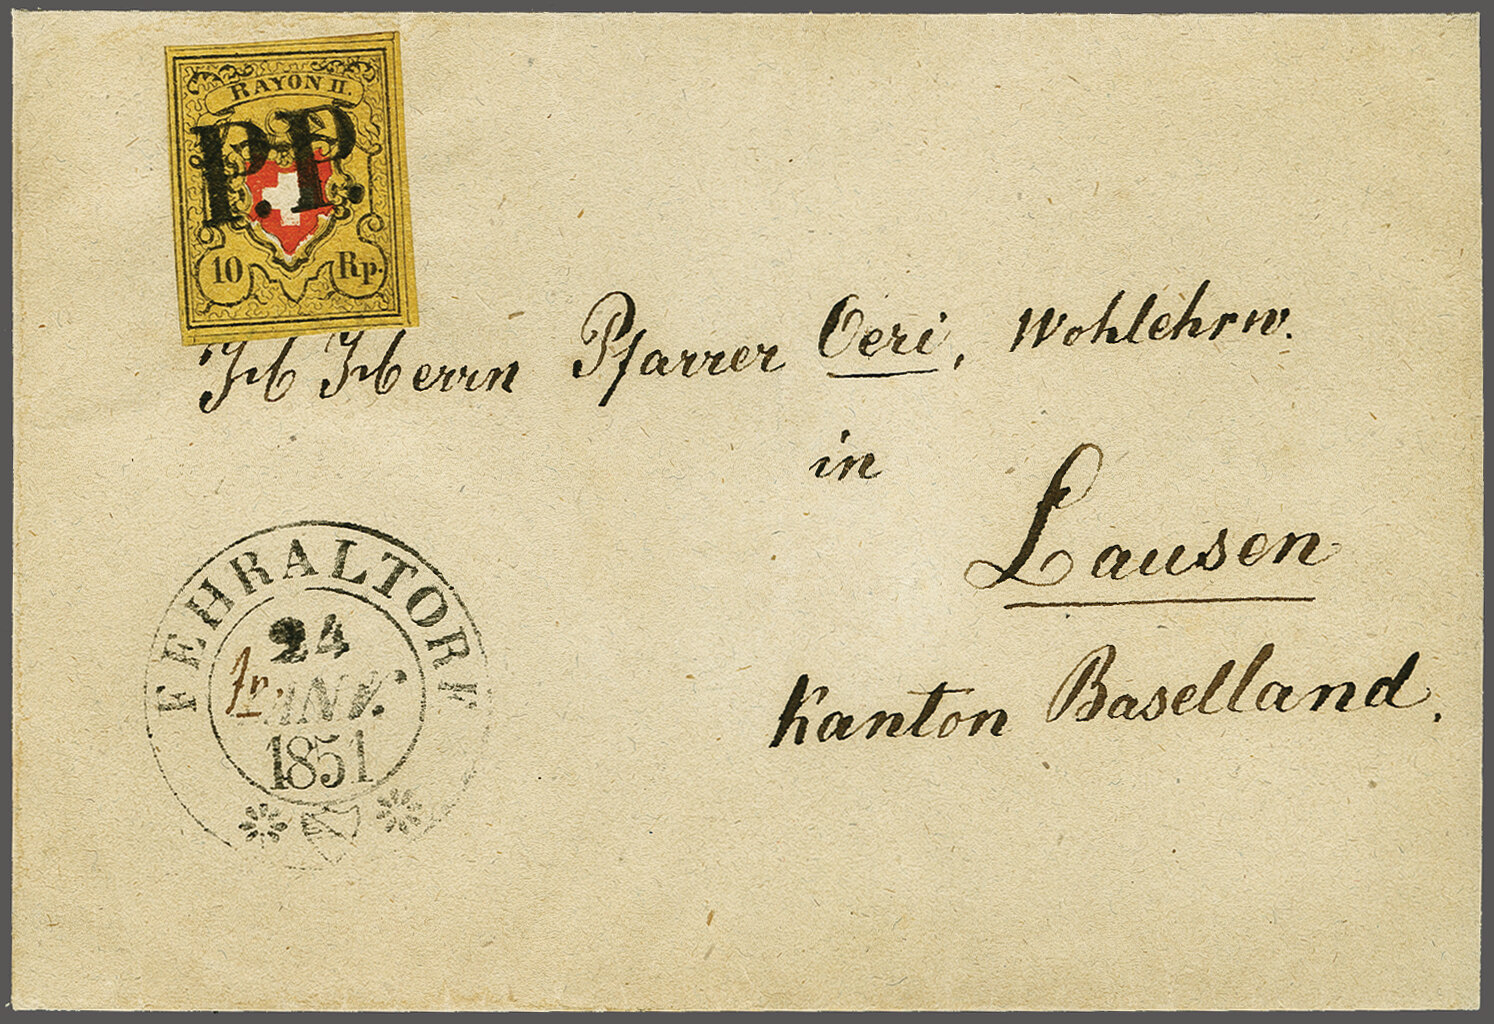 RAYON II.
P.P.
10 Rp.
Herrn Pfarrer Oeri, Wohlehrw.
in
Lausen
Kanton Baselland.
FEHRALTORF
24
JANV.
1851
fr.